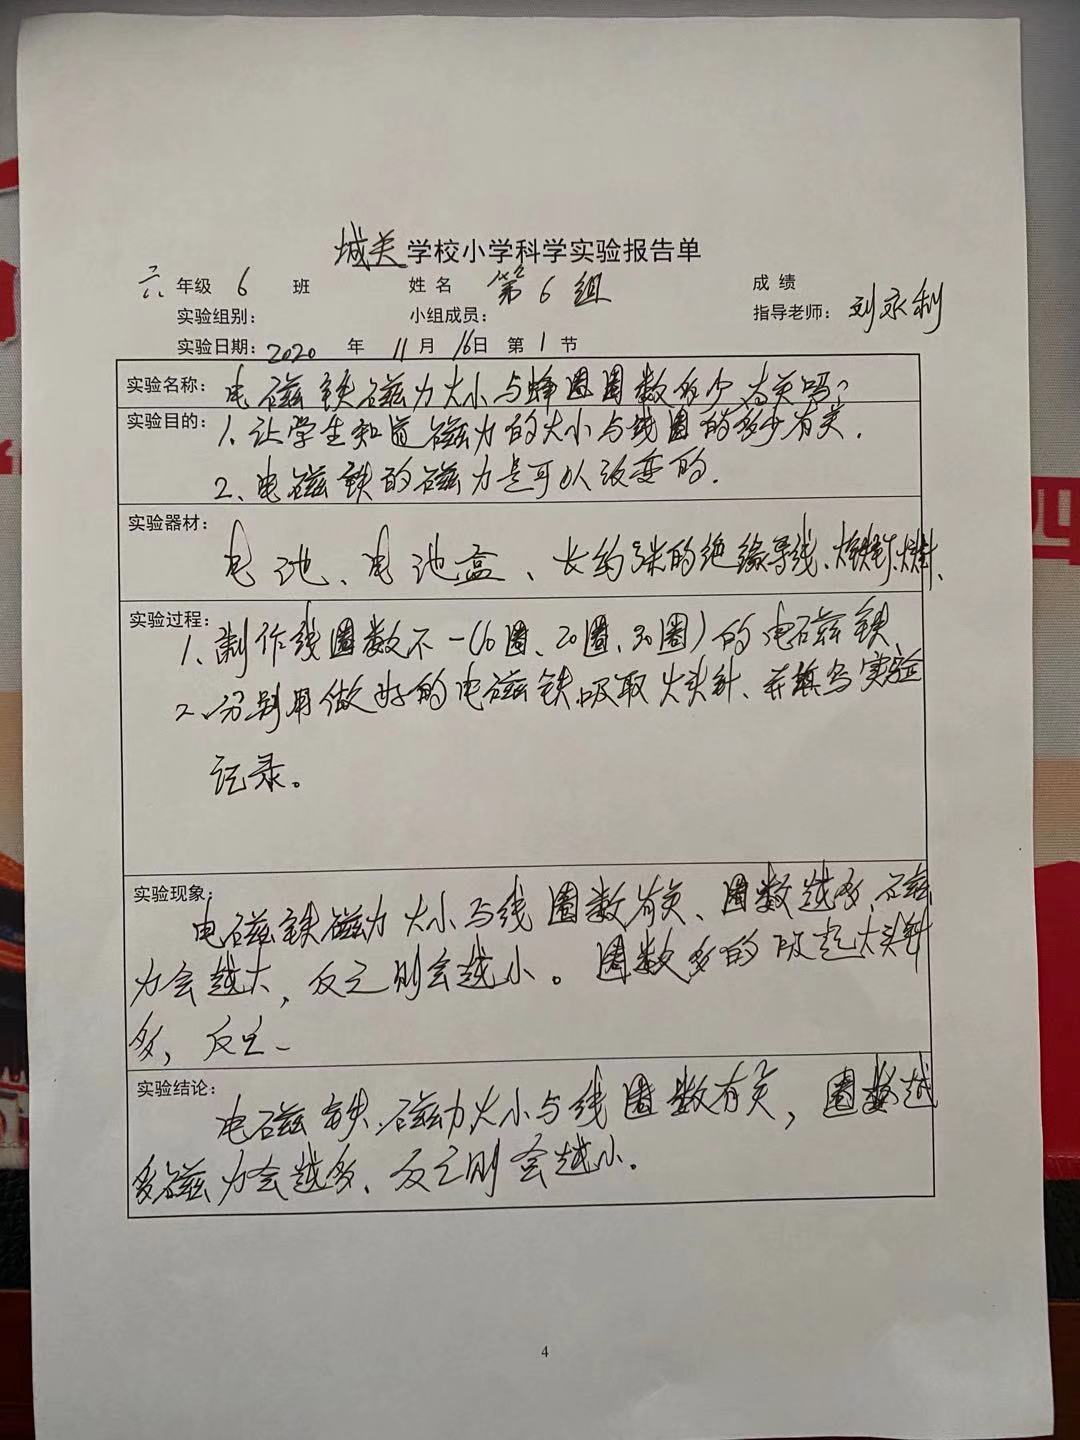 城关学校小学科学实验报告单
六年级 6 班 姓名 第6组 成绩
实验组别: 小组成员: 指导老师: 刘永利
实验日期: 2020 年 11月 16日 第 1 节
实验名称: 电磁铁磁力大小与线圈圈数多少有关吗?
实验目的: 1、让学生知道磁力的大小与线圈的多少有关.
2、电磁铁的磁力是可以改变的.
实验器材:
电池、电池盒、长约3米的绝缘导线、
实验过程:
1、制作线圈数不一(10圈、20圈、30圈)的电磁铁
2、分别用做好的电磁铁吸取大头针、并填写实验
记录。
实验现象:
电磁铁磁力大小与线圈数有关、圈数越多,磁
力会越大,反之则会越小。圈数多的吸起大头针
多,反之
实验结论:
电磁铁磁力大小与线圈数有关,圈数越
多磁力会越多、反之则会越小.
4
四